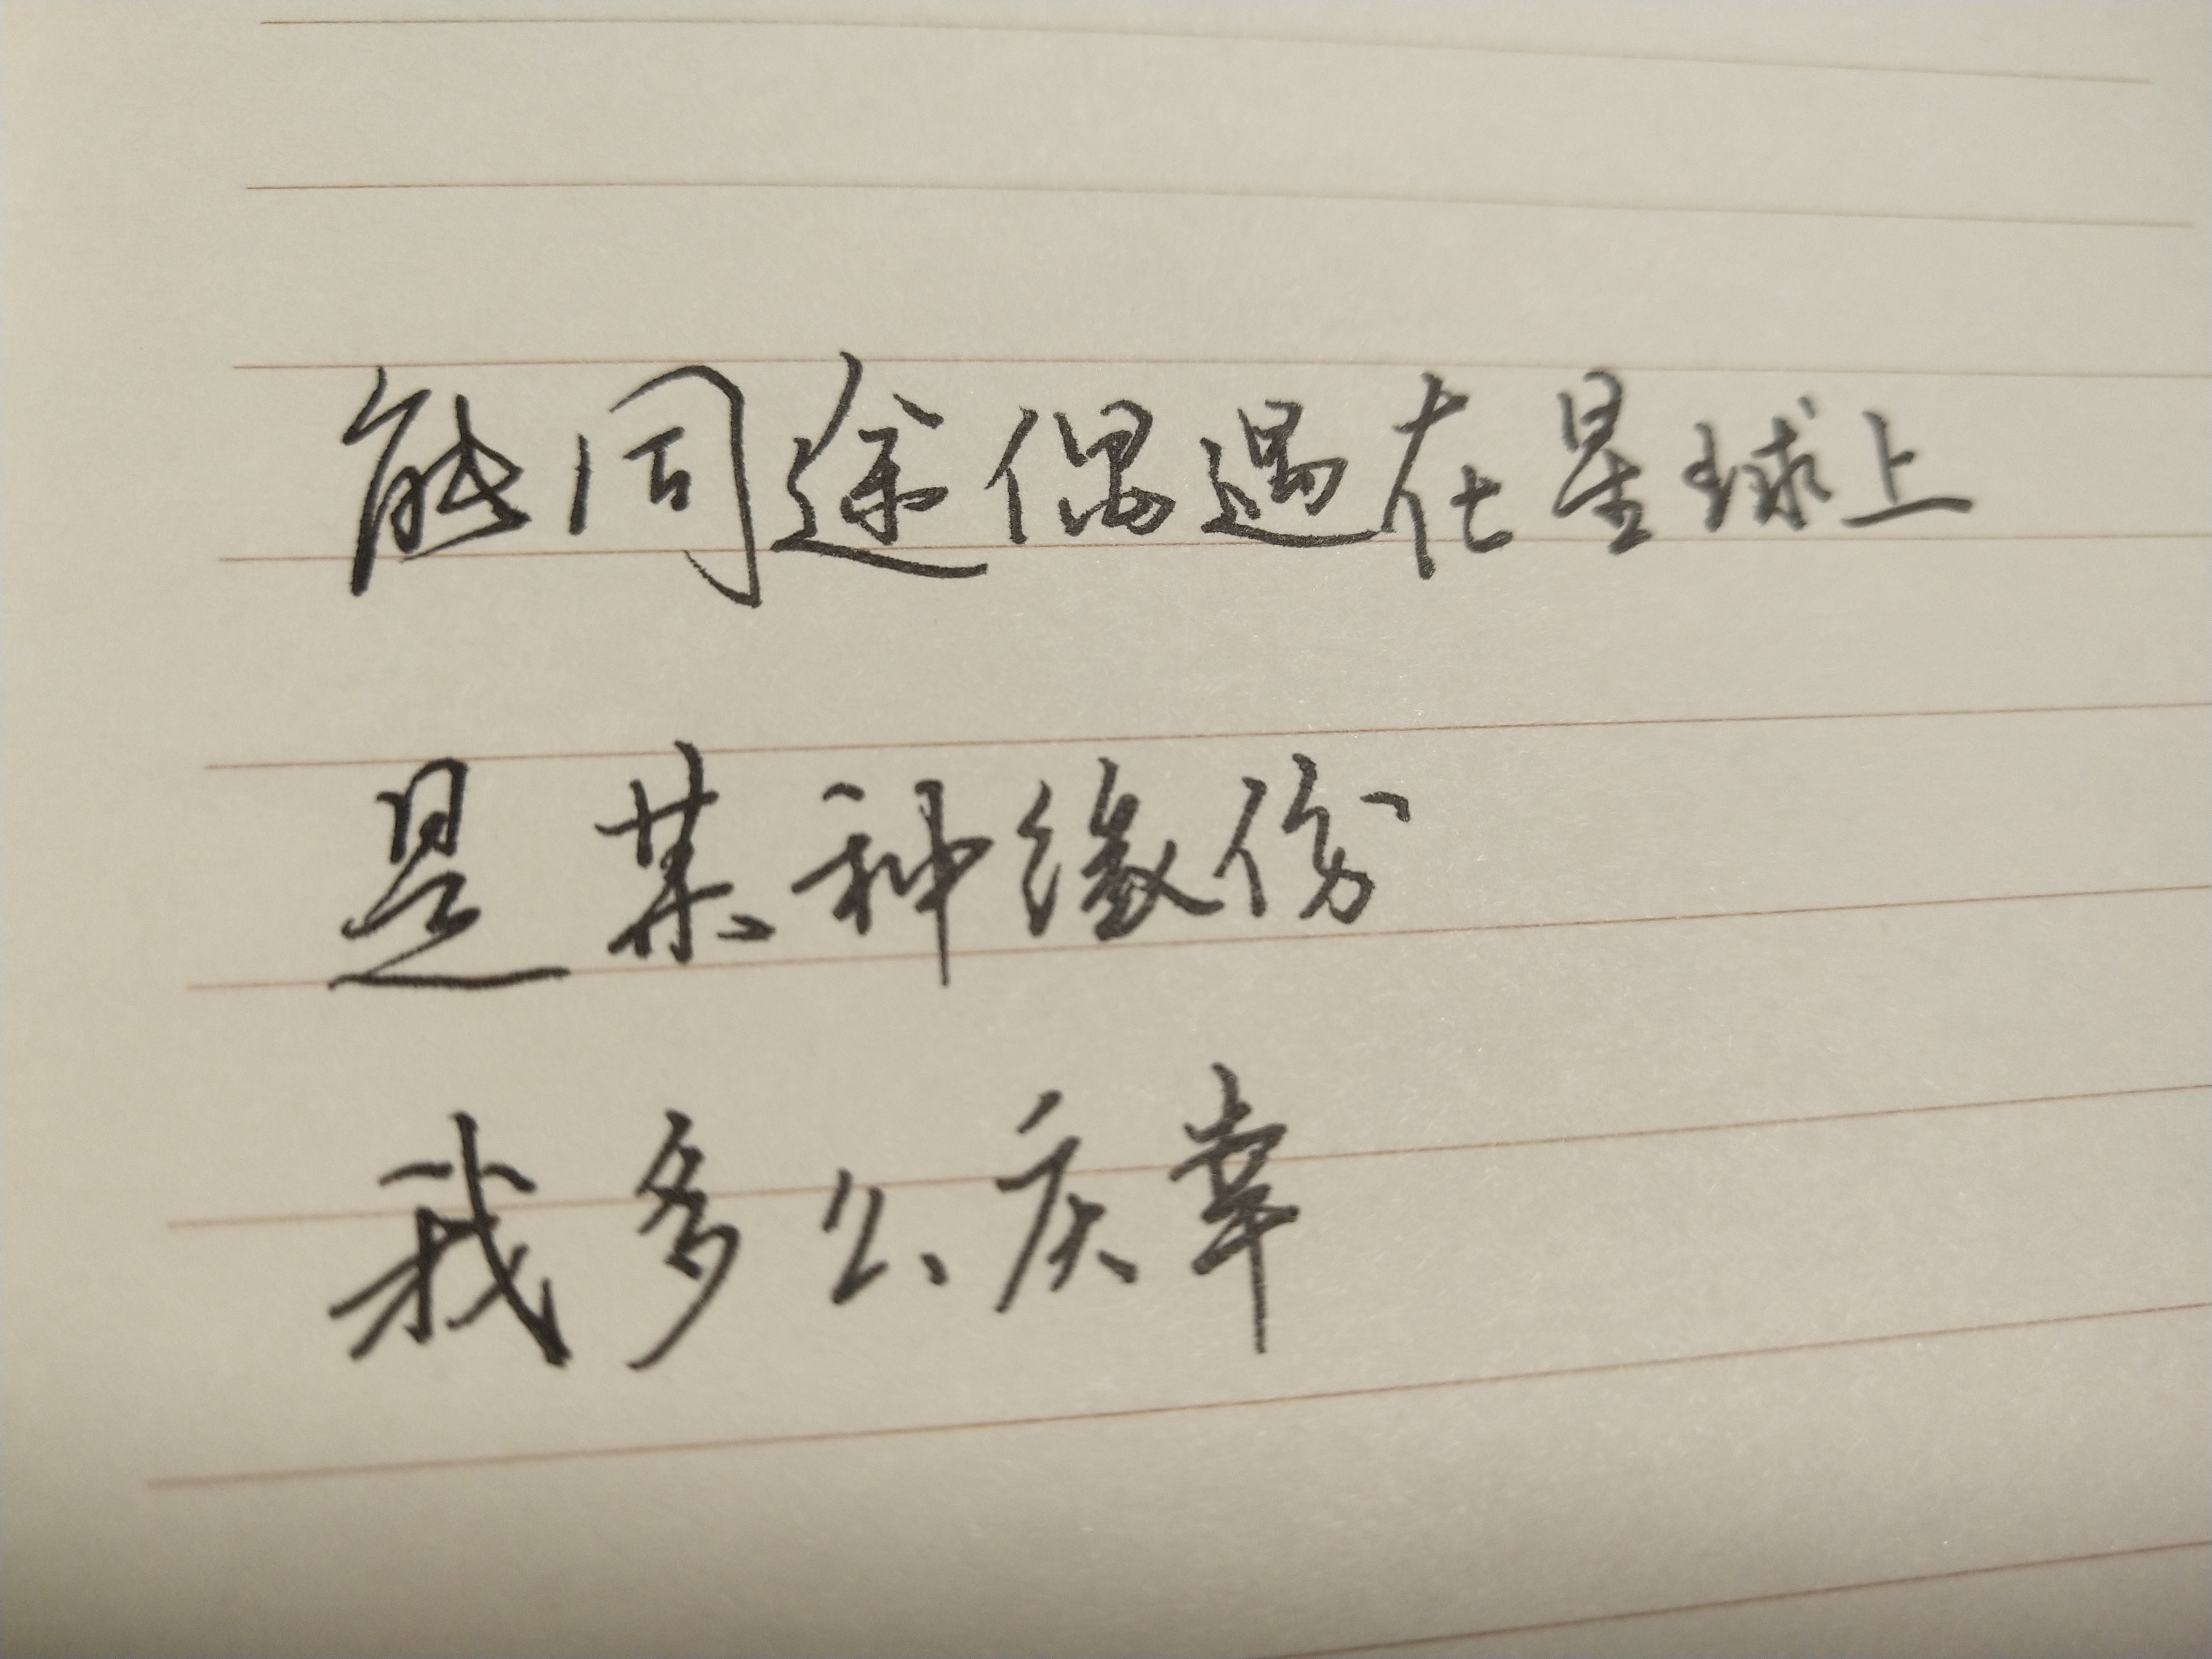 能同途偶遇在星球上
是某种缘份
我多么庆幸